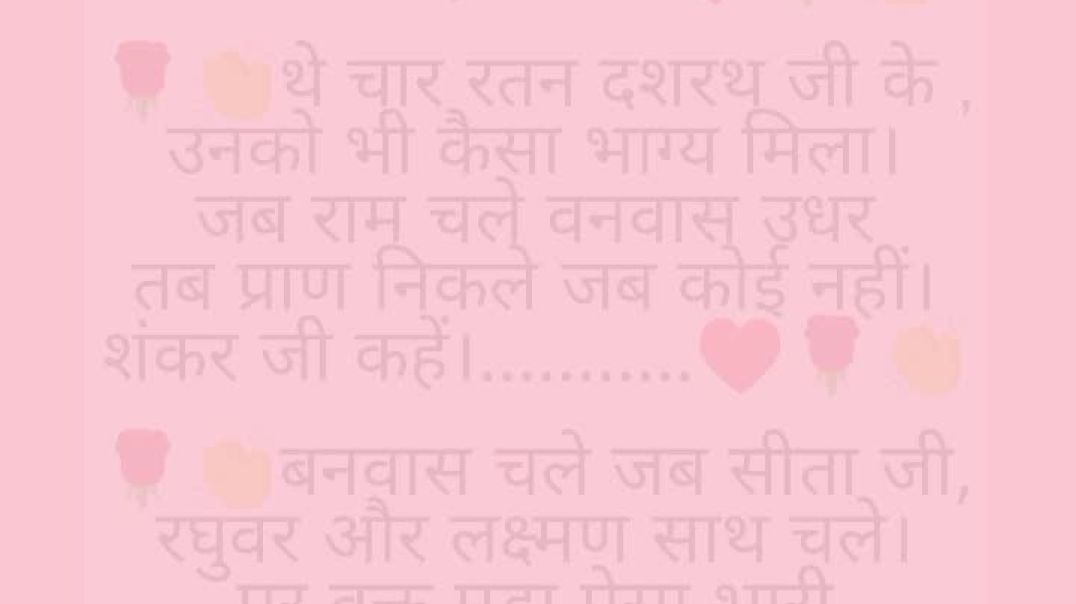 🌹 👏थे चार रतन दशरथ जी के ,
उनको भी कैसा भाग्य मिला।
जब राम चले वनवास उधर
तब प्राण निकले जब कोई नहीं।
शंकर जी कहें।...........❤️🌹 👏
🌹 👏बनवास चले जब सीता जी,
रघुवर और लक्ष्मण साथ चले।